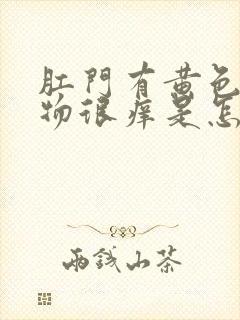 肛門有黄色
物很痒是怎
兩錢山茶